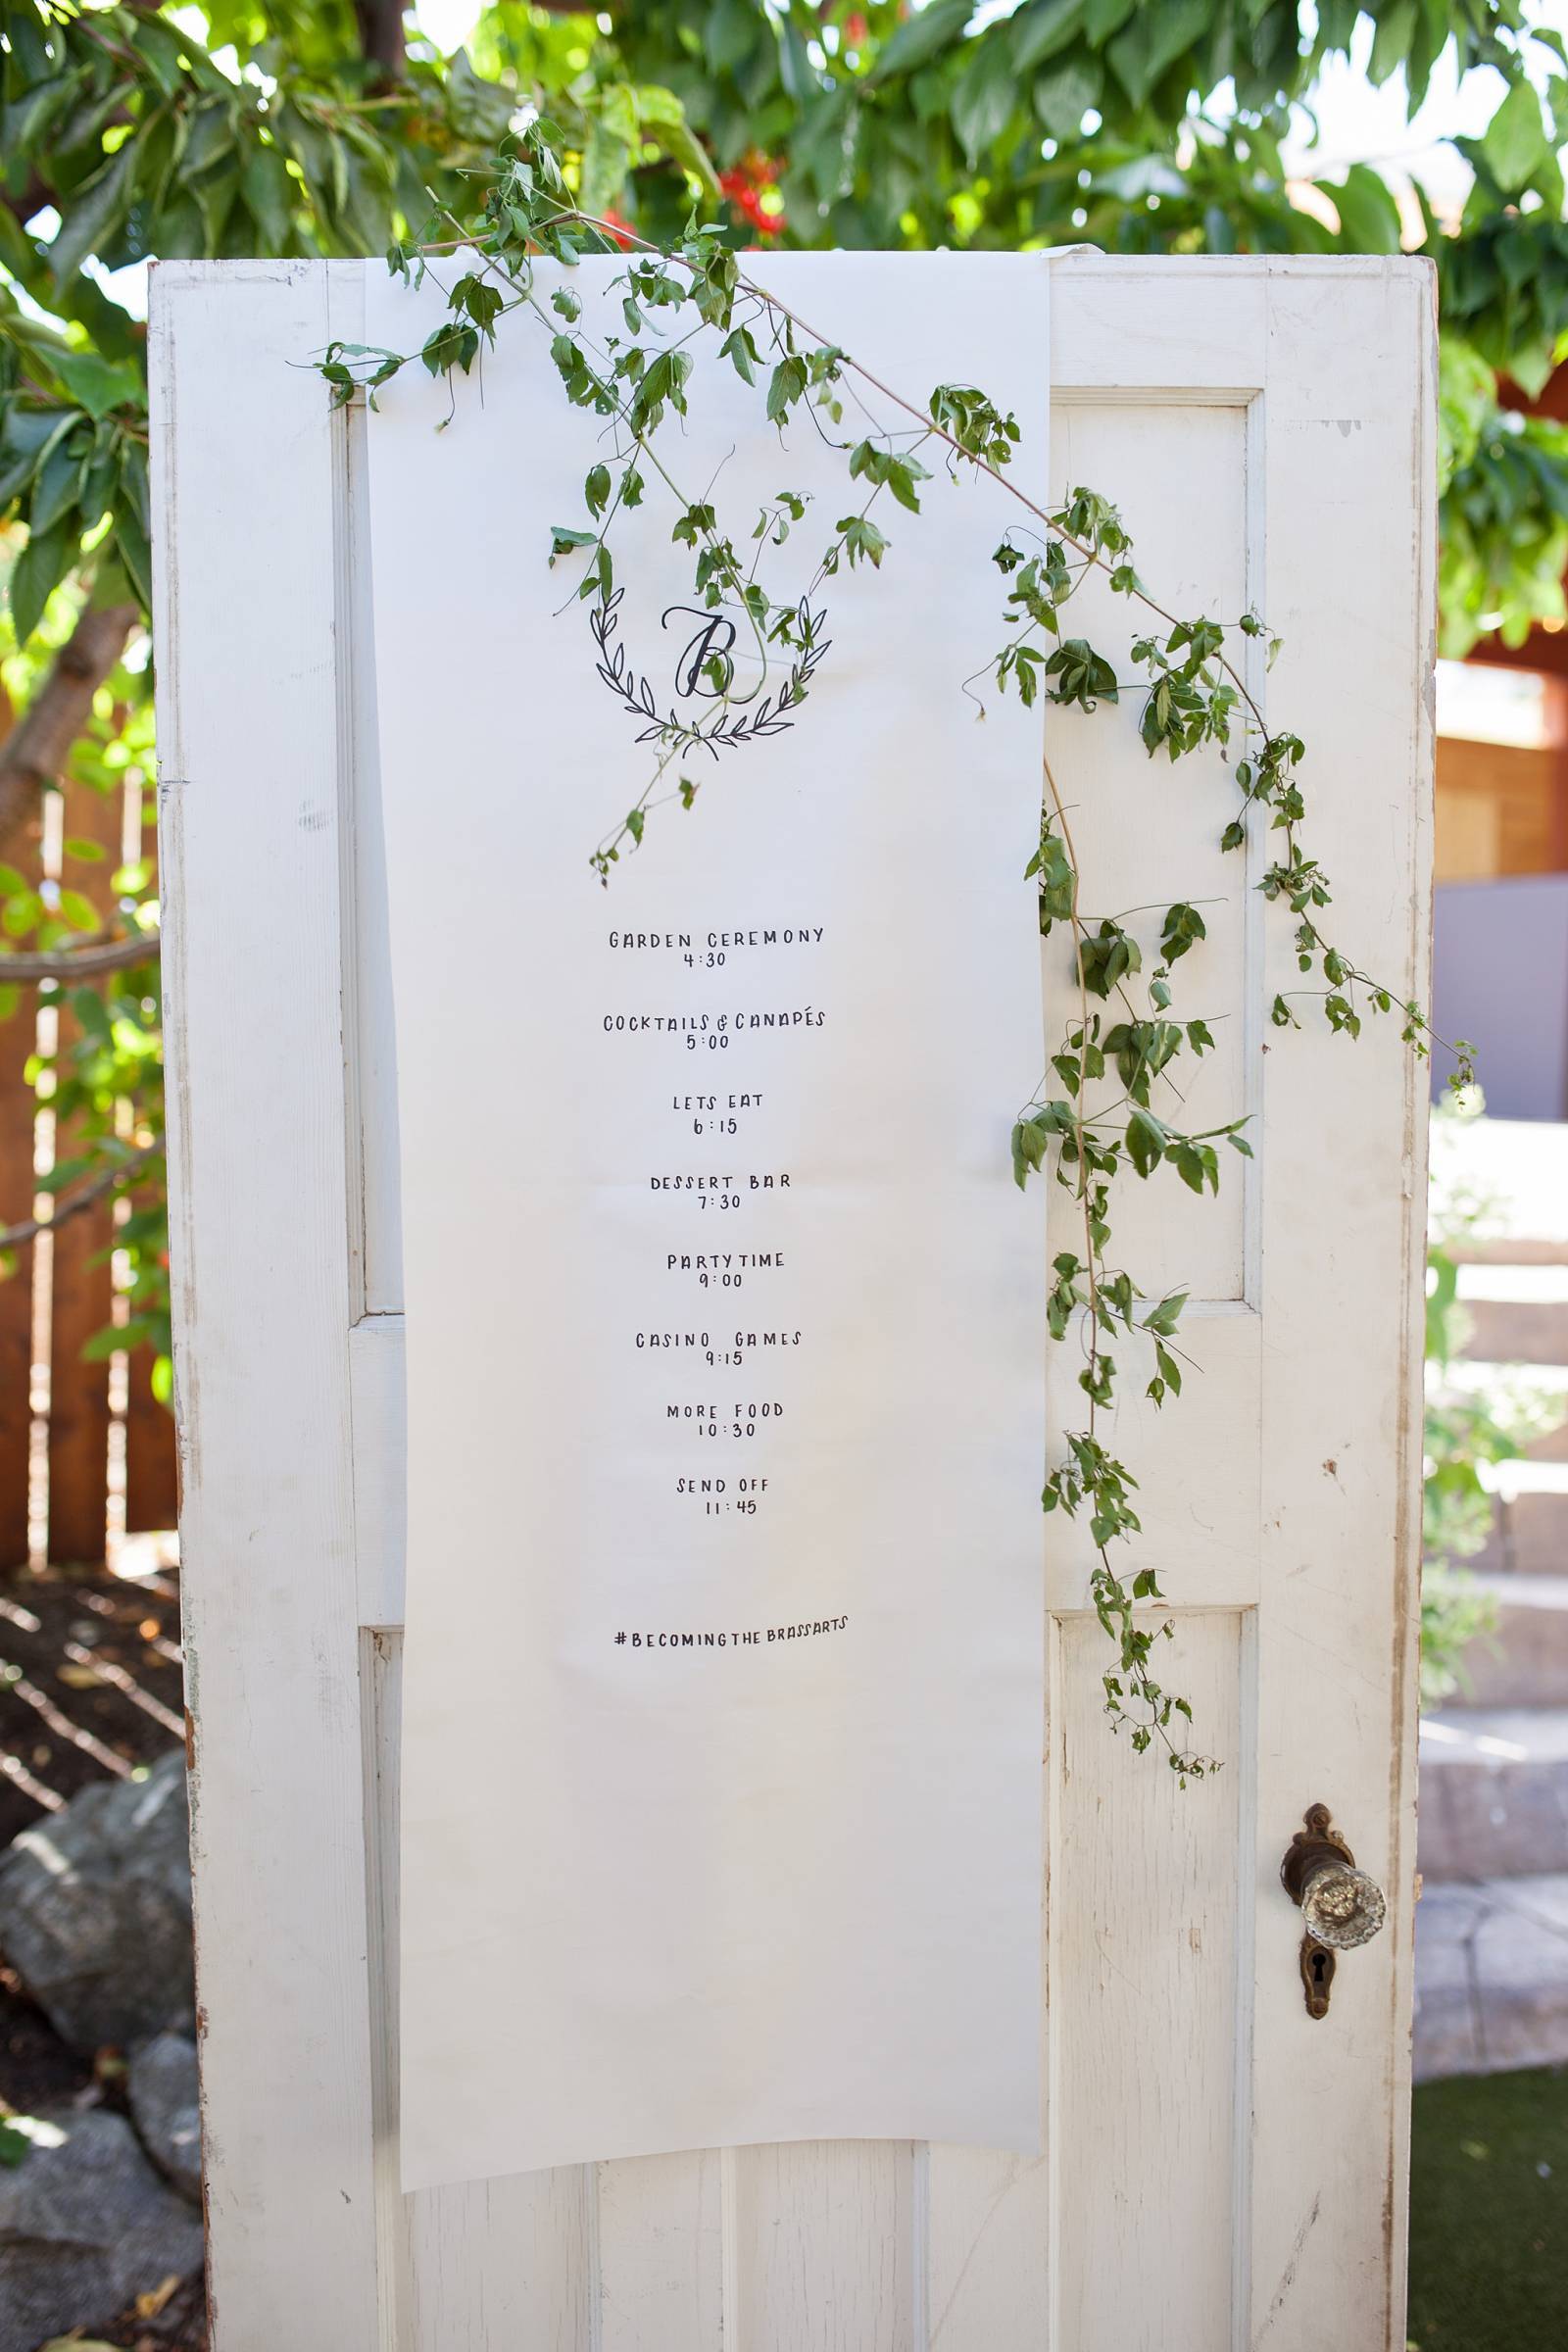 B
GARDEN CEREMONY
4:30
COCKTAILS & CANAPÉS
5:00
LETS EAT
6:15
DESSERT BAR
7:30
PARTY TIME
9:00
CASINO GAMES
9:15
MORE FOOD
10:30
SEND OFF
11:45
#BECOMINGTHEBRASSARTS